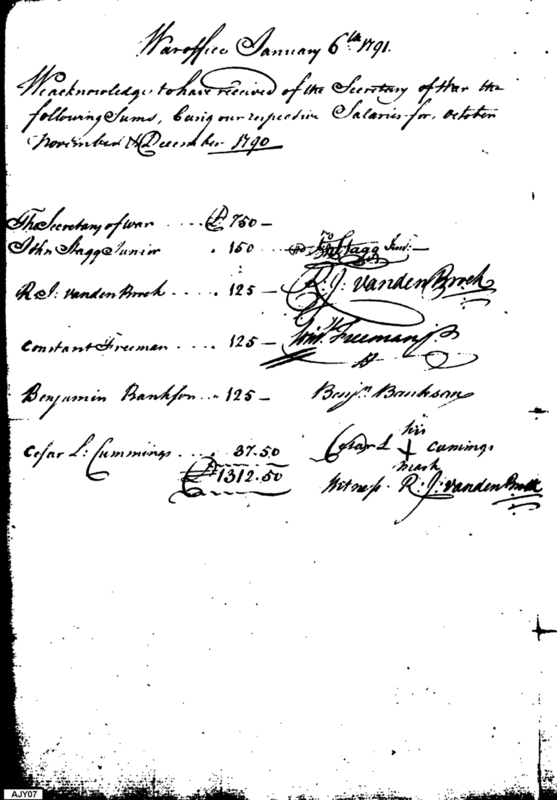 War office January 6th 1791.
We acknowledge to have received of the Secretary of War the
following Sums, being our respective Salaries for October
November & December 1790
The Secretary of war .... 750 —
John Stagg Junior . 150 — Jno Stagg Junr. —
R. J. Vanden Broek .... . 125 — R. J. Vanden Broek
Constant Freeman .... . 125 — Freeman
Benjamin Bankson .. . 125 — Benjn. Bankson
Cesar L. Cummings ... . 37.50 Cesar L his + mark Cumings
1312.50 Witness R. J. Vanden Broek
AJY07